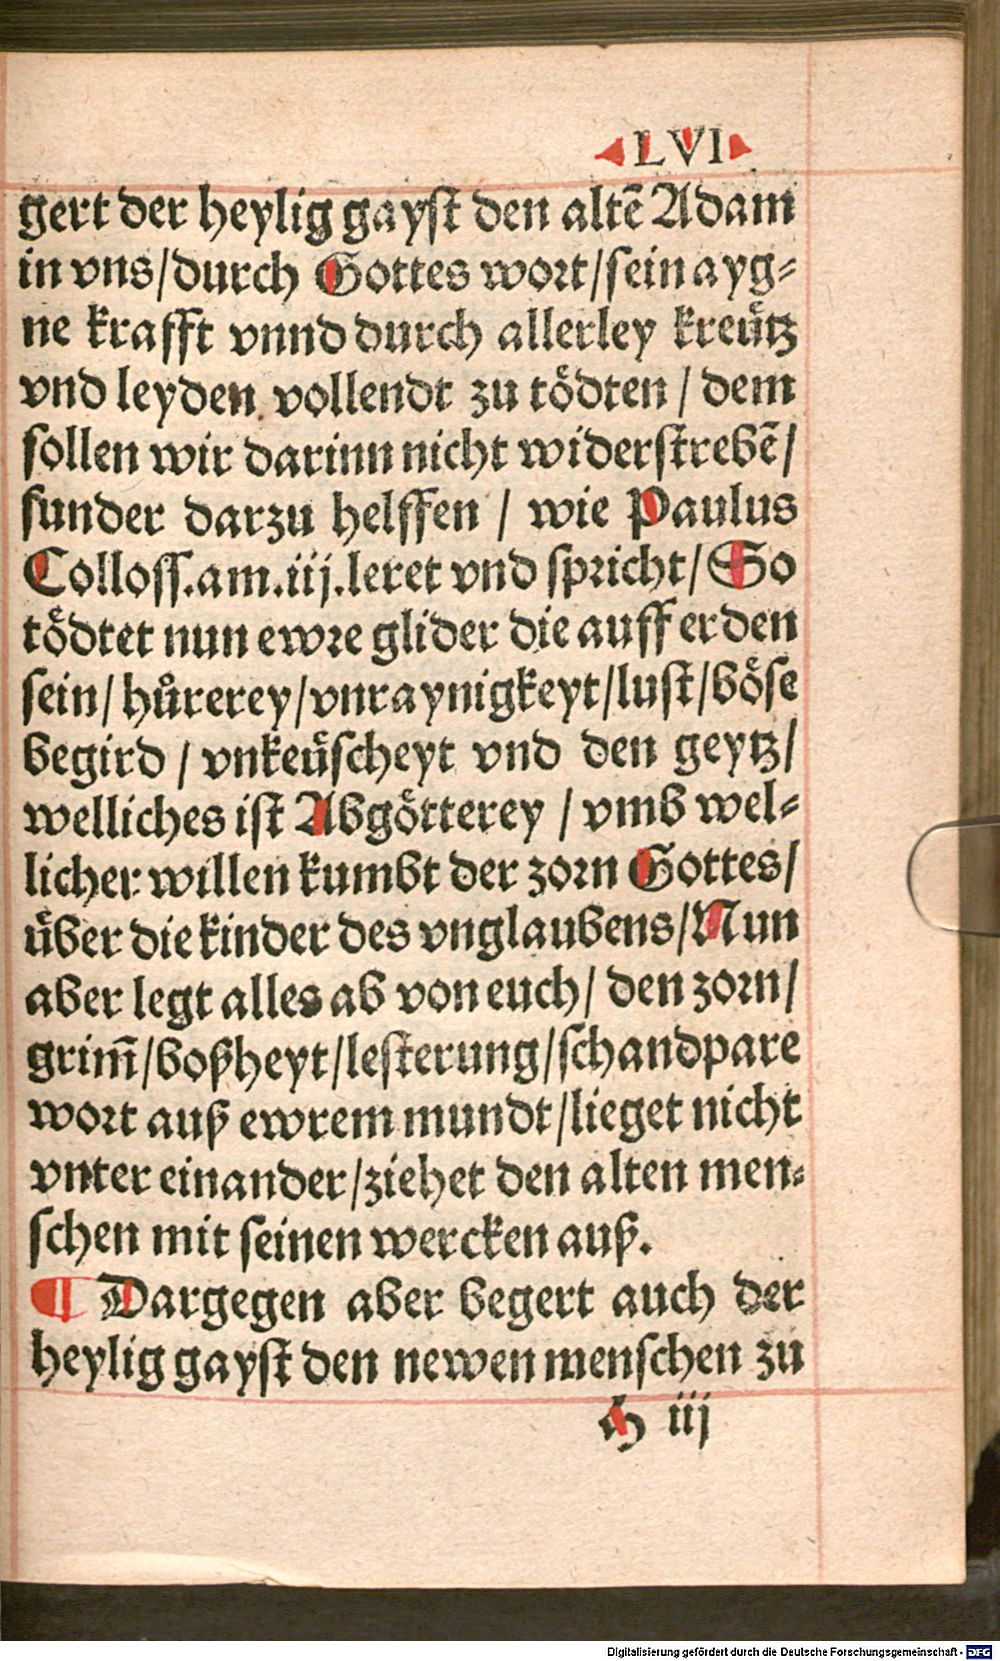 LVI
gert der heylig gayst den altē Adam
in vns/durch Gottes wort/sein ayg⸗
ne krafft vnnd durch allerley kreütz
vnd leyden vollendt zu tödten / dem
sollen wir darinn nicht widerstrebē/
sunder darzu helffen / wie Paulus
Colloss.am.iij.leret vnd spricht/So
tödtet nun ewre glider die auff erden
sein/hůrerey/vnraynigkeyt/lust/böse
begird / vnkeüscheyt vnd den geytz/
welliches ist Abgötterey / vmb wel⸗
licher willen kumbt der zorn Gottes/
über die kinder des vnglaubens/Nun
aber legt alles ab von euch/ den zorn/
grim̃/boßheyt/lesterung/schandpare
wort auß ewrem mundt/lieget nicht
vnter einander/ziehet den alten men⸗
schen mit seinen wercken auß.
¶ Dargegen aber begert auch der
heylig gayst den newen menschen zu
H iij
Digitalisierung gefördert durch die Deutsche Forschungsgemeinschaft - DFG